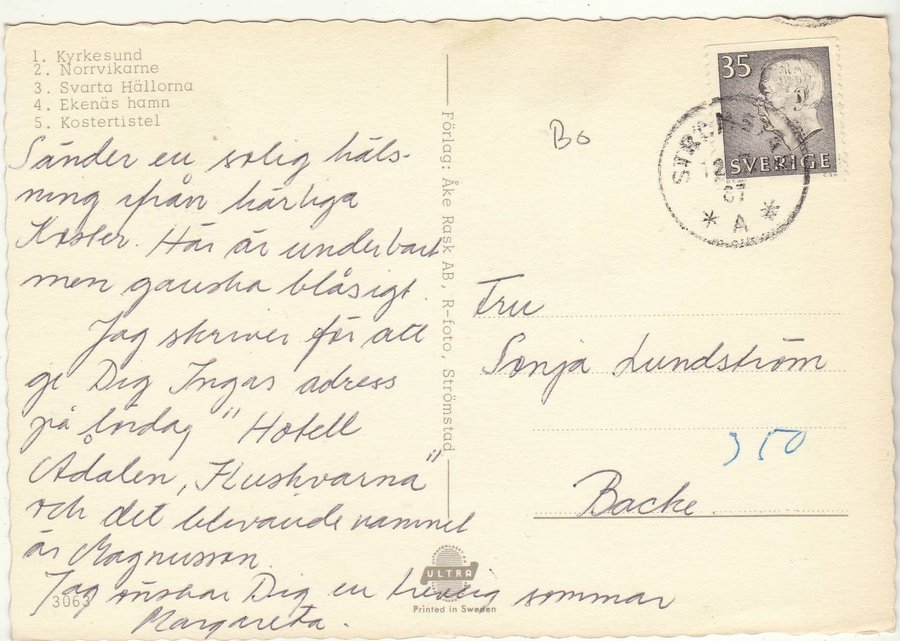 1. Kyrkesund
2. Norrvikarne
3. Svarta Hällorna
4. Ekenäs hamn
5. Kostertistel
Sänder en solig häls-
ning ifrån härliga
Koster. Här är underbart
men ganska blåsigt.
Jag skriver för att
ge Dig Ingas adress
på lördag "Hotell
Ådalen, Huskvarna"
och det blivande namnet
är Magnusson.
Jag önskar Dig en trevlig sommar
Margareta.
3063
Förlag: Åke Rask AB, R-foto, Strömstad
ULTRA
Printed in Sweden
Bo
35
SVERIGE
* A *
Fru
Sonja Lundström
350
Backe